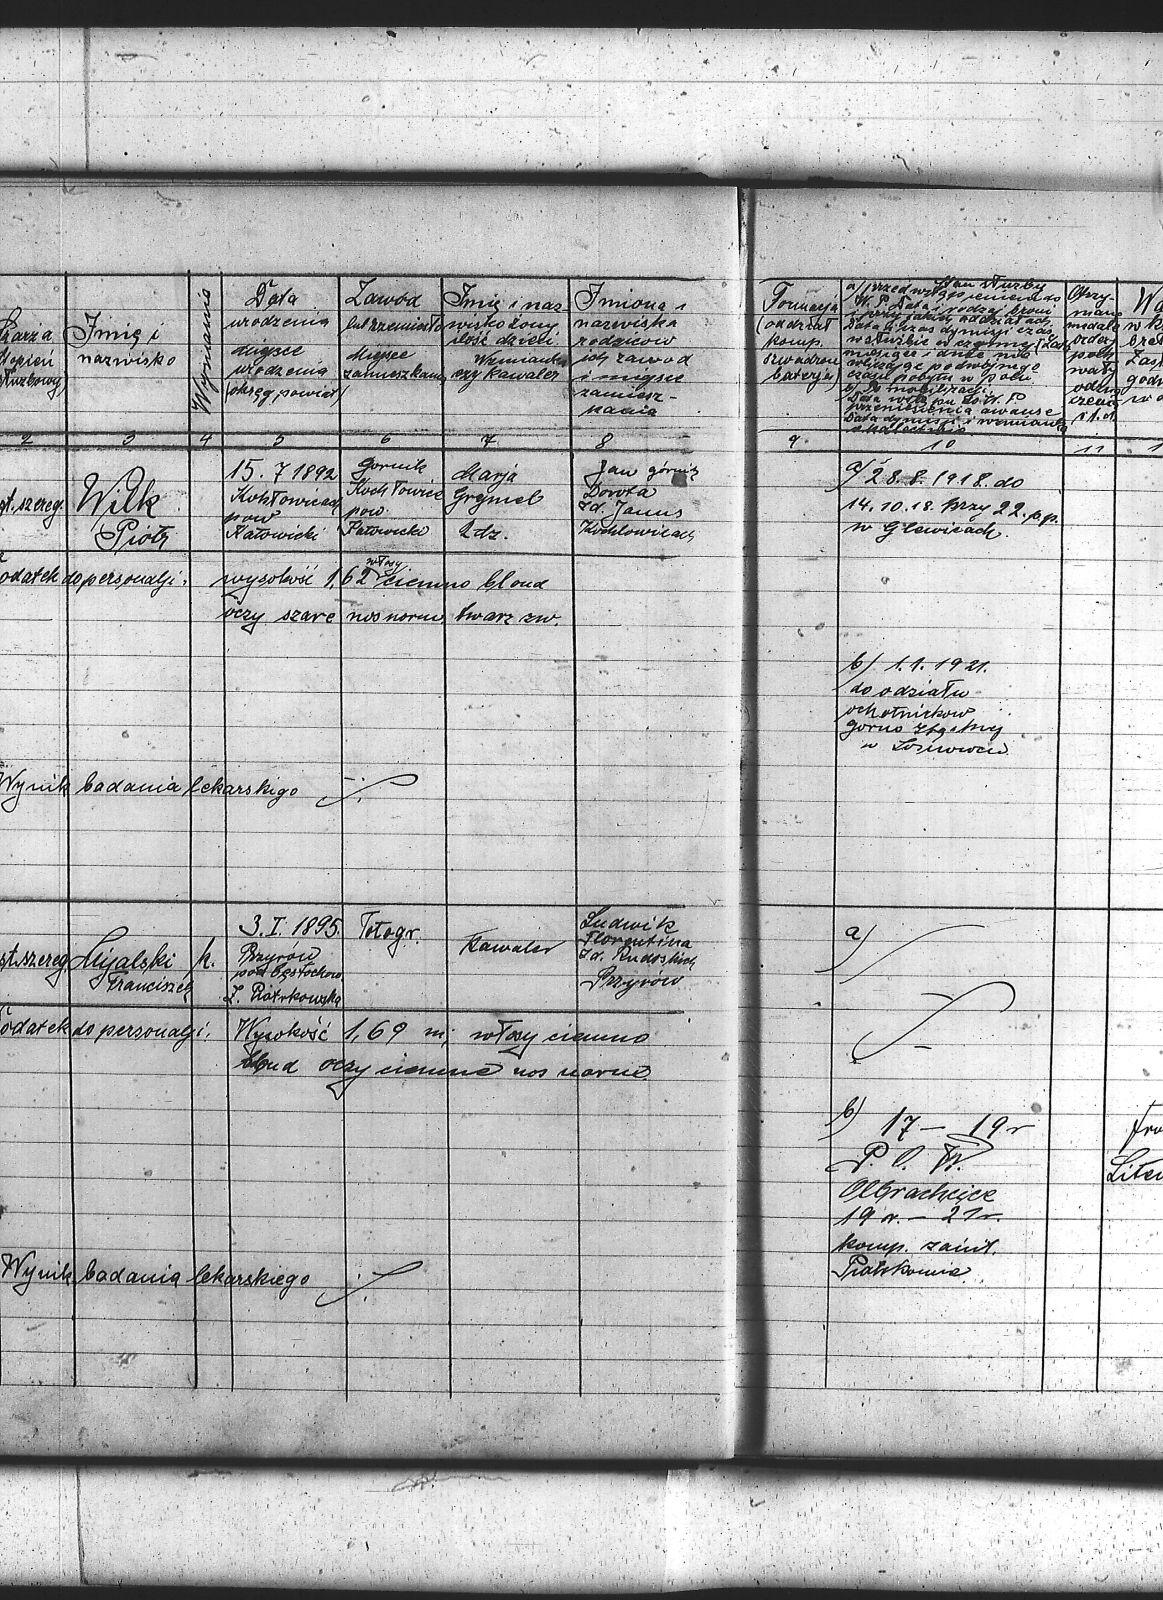 Szarża
stopień
służbowy
Imię i
nazwisko
Wyznanie
Data
urodzenia
miejsce
urodzenia
okręg powiat
Zawód
lub rzemiosło
Miejsce
zamieszkania
Imię i naz-
wisko żony,
ilość dzieci
czy kawaler
Imiona i
nazwiska
rodziców
ich zawód
i miejsce
zamiesz-
kania
Formacja
oddział
komp.
szwadron
baterja
a) przed wstąpieniem do
W. P. Data, rodzaj broni
i przy jakim oddziałach
b) Po mobilizacji
Otrzy-
mane
medale
order
poch-
wały
2 3 4 5 6 7 8 9 10 11
st. szereg.
Wilk
Piotr
15. 7 1892
Kochłowicach
pow
Katowicki
Gornik
Kochłowice
pow.
Katowicki
Marja
Grymel
2 dz.
Jan górnik
Dorota
zd. Janus
Kochlowicach
a) 28. 8. 1918. do
14. 10. 18. przy 22. p. p.
w Glewicach.
odatek do personalji: wysokość 1,62 włosy ciemno blond
oczy szare nos norm. twarz zw.
b) 1. 1. 1921.
do odziału
ochotnickow
w Sosnowcu
Wynik badania lekarskigo
st. szereg
Mijalski
Franciszek
k.
3. I. 1895.
Przyrów
pow Częstochowa
Z. Piotrkowska
Fotogr.
Kawaler
Ludwik
Florentina
zd. Rudoskich
Przyrów
a)
odatek do personalji: Wysokość 1,69 m; włosy ciemno
blond oczy ciemne nos norme.
b) 17 — 19 r
P. O. W.
Olbrachcice
19 r. — 21 r.
komp. sanit.
Piotrkowie
Wynik badania lekarskiego